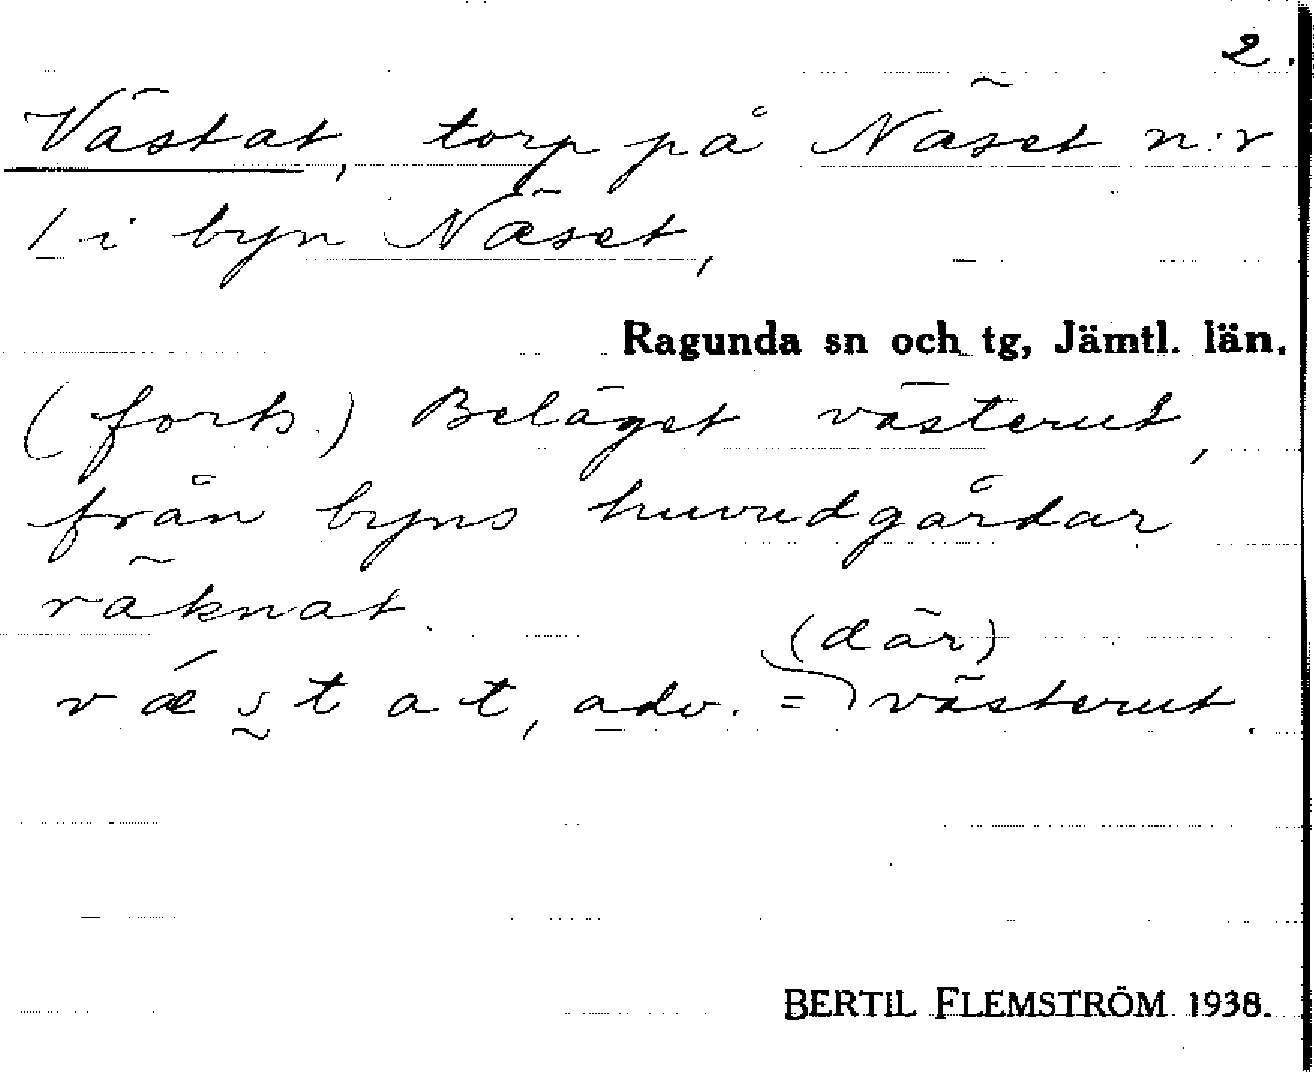 2.
Västat, torp på Näset n:r
1 i byn Näset,
Ragunda sn och tg, Jämtl. län.
(forts.) Beläget västerut,
från byns huvudgårdar
räknat.
(där)
væ´s̰tat, adv. = västerut.
BERTIL FLEMSTRÖM 1938.